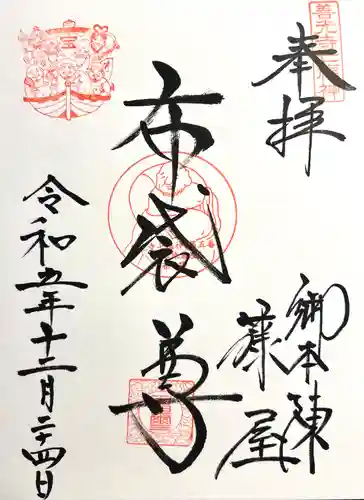 奉拝
布袋尊
御本陳
藤屋
令和五年十二月二十四日
宝